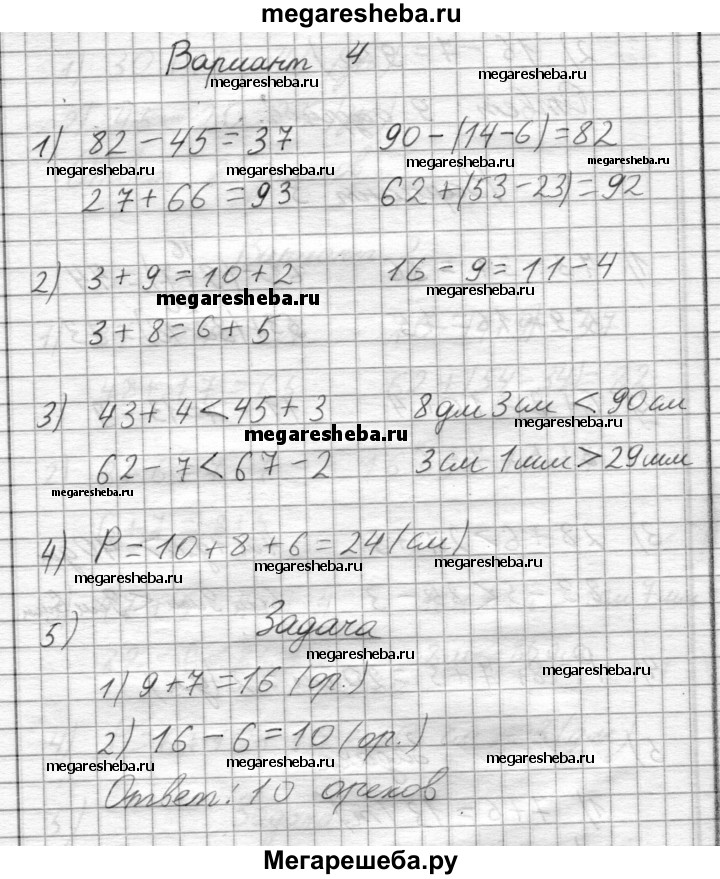 megaresheba.ru
Вариант 4
megaresheba.ru megaresheba.ru
1) 82 - 45 = 37 90 - (14 - 6) = 82
megaresheba.ru megaresheba.ru megaresheba.ru megaresheba.ru
27 + 66 = 93 62 + (53 - 23) = 92
2) 3 + 9 = 10 + 2 16 - 9 = 11 - 4
megaresheba.ru megaresheba.ru
3 + 8 = 6 + 5
3) 43 + 4 < 45 + 3 8 дм 3 см < 90 см
megaresheba.ru megaresheba.ru
62 - 7 < 67 - 2 3 см 1 мм > 29 мм
megaresheba.ru
4) P = 10 + 8 + 6 = 24 (см)
megaresheba.ru megaresheba.ru megaresheba.ru
5) Задача
megaresheba.ru megaresheba.ru
1) 9 + 7 = 16 (ор.)
2) 16 - 6 = 10 (ор.)
megaresheba.ru megaresheba.ru megaresheba.ru
Ответ: 10 орехов
Мегарешеба.ру